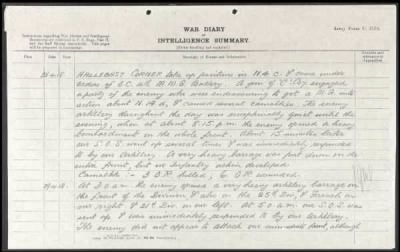 WAR DIARY
or
INTELLIGENCE SUMMARY.
(Erase heading not required.)
Army Form C. 2118.
Instructions regarding War Diaries and Intelligence
Summaries are contained in F. S. Regs., Part II.
and the Staff Manual respectively. Title pages
will be prepared in manuscript.
Place
Date
Hour
Summary of Events and Information
HALLEBAST CORNER take up positions in N.4.c. & come under
orders of O.C. Battery. A gun of "C" Coy engaged
a party of the enemy who were endeavouring to get a M.G. into
action about & caused several casualties. The enemy
artillery throughout the day was exceptionally quiet until the
evening, when at about 8.15 p.m. the enemy opened a heavy
bombardment on the whole front. About 15 minutes later
our S.O.S. went up several times & was immediately responded
to by our Artillery. A very heavy barrage was put down on the
entire front, but no Infantry action developed.
Casualties:- 2 O.R. killed, 6 O.R. wounded.
At 3.0 a.m. the enemy opened a very heavy artillery barrage on
the front of the Division & also on the 25th Div. & French on
our right & 21st Div. on our left. At 5.0 a.m. our S.O.S.
went up & was immediately responded to by our Artillery.
The enemy did not appear to attack our immediate front, although